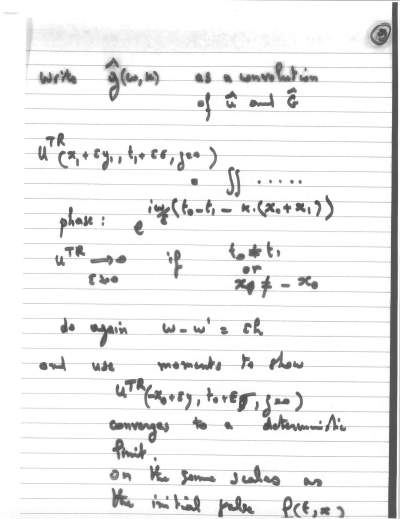 9
write ĝ(ω,κ) as a convolution
of û and Ĝ
u^TR(x₁+εy₁, t₁+εσ, z=0)
= ∬ .....
phase: e^{i ω/ε (t₀-t₁ - κ.(x₀+x₁))}
u^TR → 0 if t₀ ≠ t₁
ε↓0 or
x₁ ≠ - x₀
do again ω-ω' = εh
and use moments to show
u^TR(-x₀+εy, t₀+εσ, z=0)
converges to a deterministic
limit.
on the same scales as
the initial pulse f(t,x)